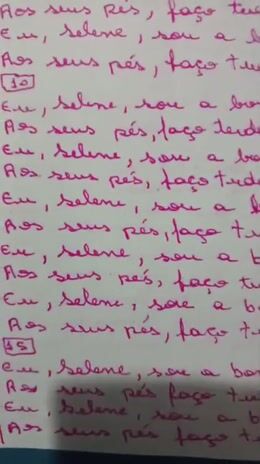 Aos seus pés, faço tud
Eu, Selene, sou a b
Aos seus pés, faço tu
10
Eu, Selene, sou a bo
Aos seus pés, faço tudo
Eu, Selene, sou a bo
Aos seus pés, faço tud
Eu, Selene, sou a b
Aos seus pés, faço tu
Eu, Selene, sou a b
Aos seus pés, faço tu
Eu, Selene, sou a b
Aos seus pés, faço t
15
Eu, Selene, sou a bo
Aos seus pés faço tu
Eu, Selene, sou a b
Aos seus pés faço tu